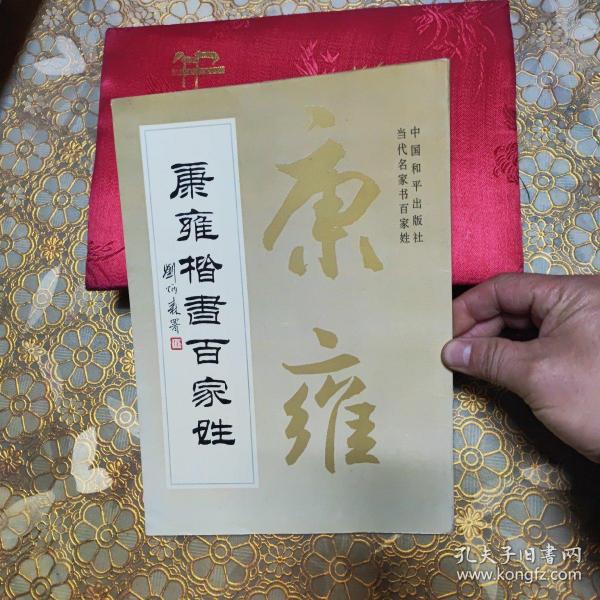 中国和平出版社
当代名家书百家姓
康雍
康雍楷書百家姓
劉炳森署
孔夫子旧書网
www.kongfz.com